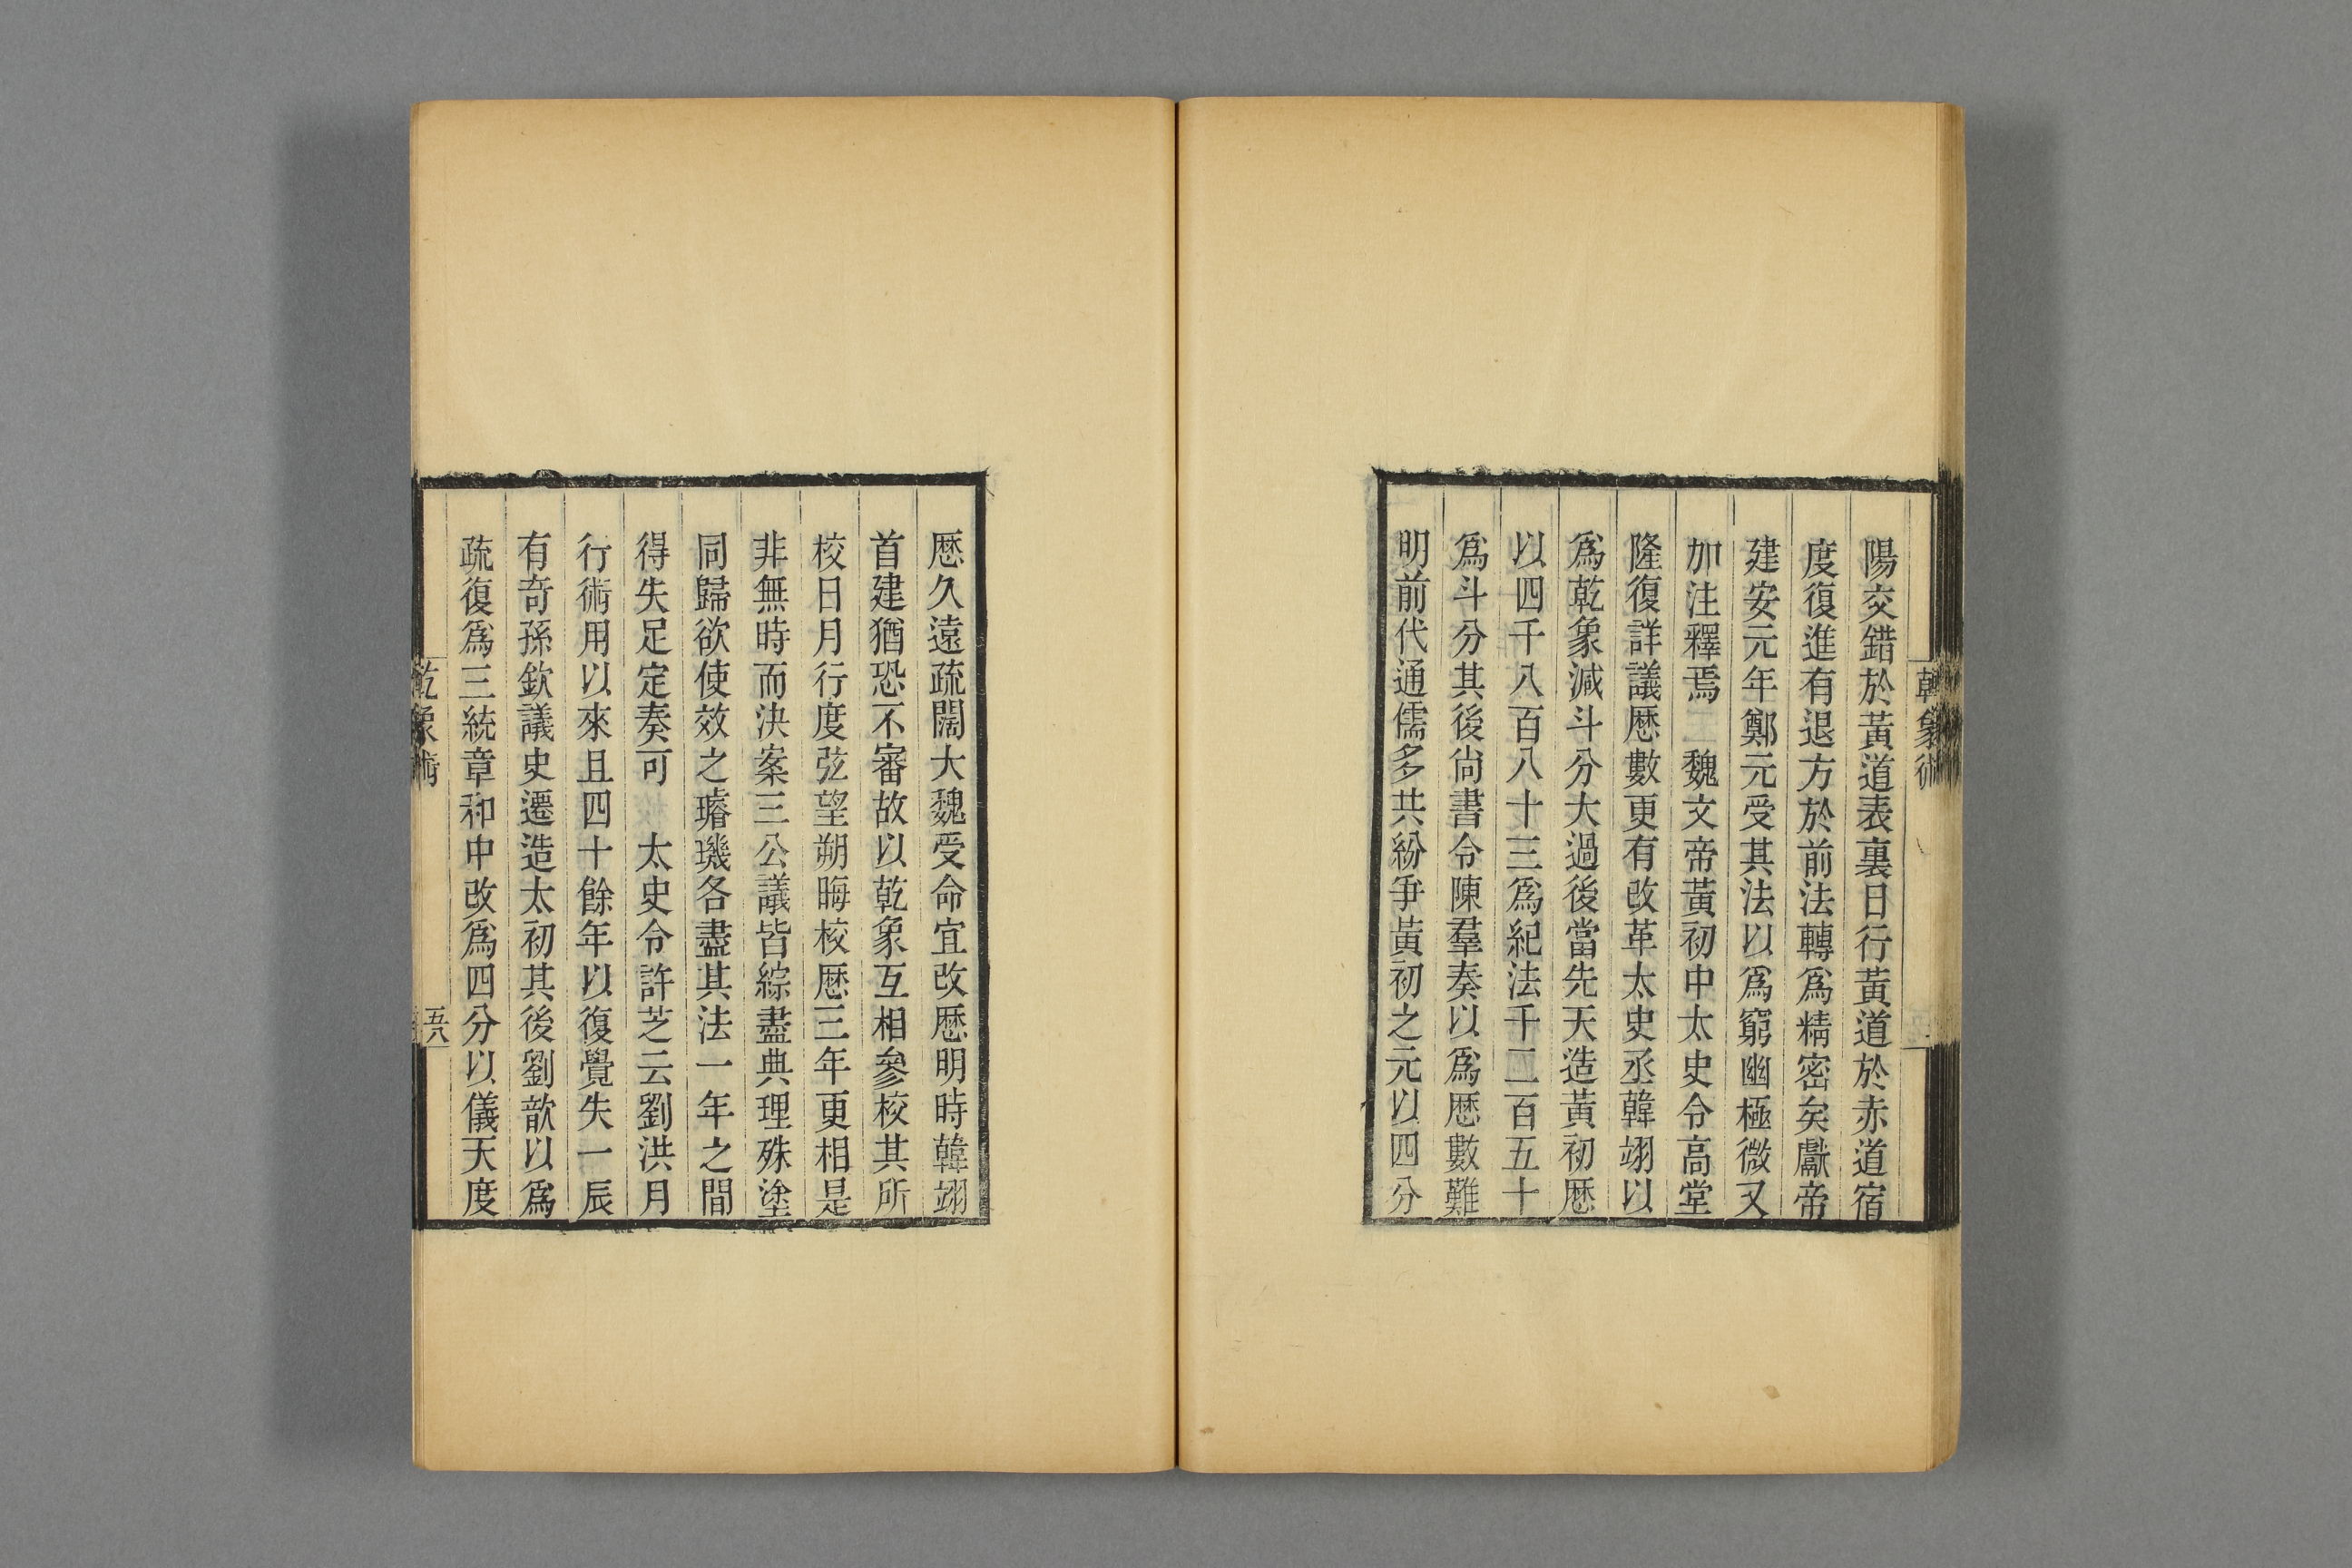 陽交錯於黃道表裏日行黃道於赤道宿
度復進有退方於前法轉爲精密矣獻帝
建安元年鄭元受其法以爲窮幽極微又
加注釋焉　魏文帝黃初中太史令高堂
隆復詳議厯數更有改革太史丞韓翊以
爲乾象減斗分大過後當先天造黃初厯
以四千八百八十三爲紀法千二百五十
爲斗分其後尙書令陳羣奏以爲厯數難
明前代通儒多共紛爭黃初之元以四分
厯久遠疏闊大魏受命宜改厯明時韓翊
首建猶恐不審故以乾象互相參校其所
校日月行度弦望朔晦校厯三年更相是
非無時而決案三公議皆綜盡典理殊塗
同歸欲使效之璿璣各盡其法一年之間
得失足定奏可　太史令許芝云劉洪月
行術用以來且四十餘年以復覺失一辰
有奇孫欽議史遷造太初其後劉歆以爲
疏復爲三統章和中改爲四分以儀天度
乾象術
五八